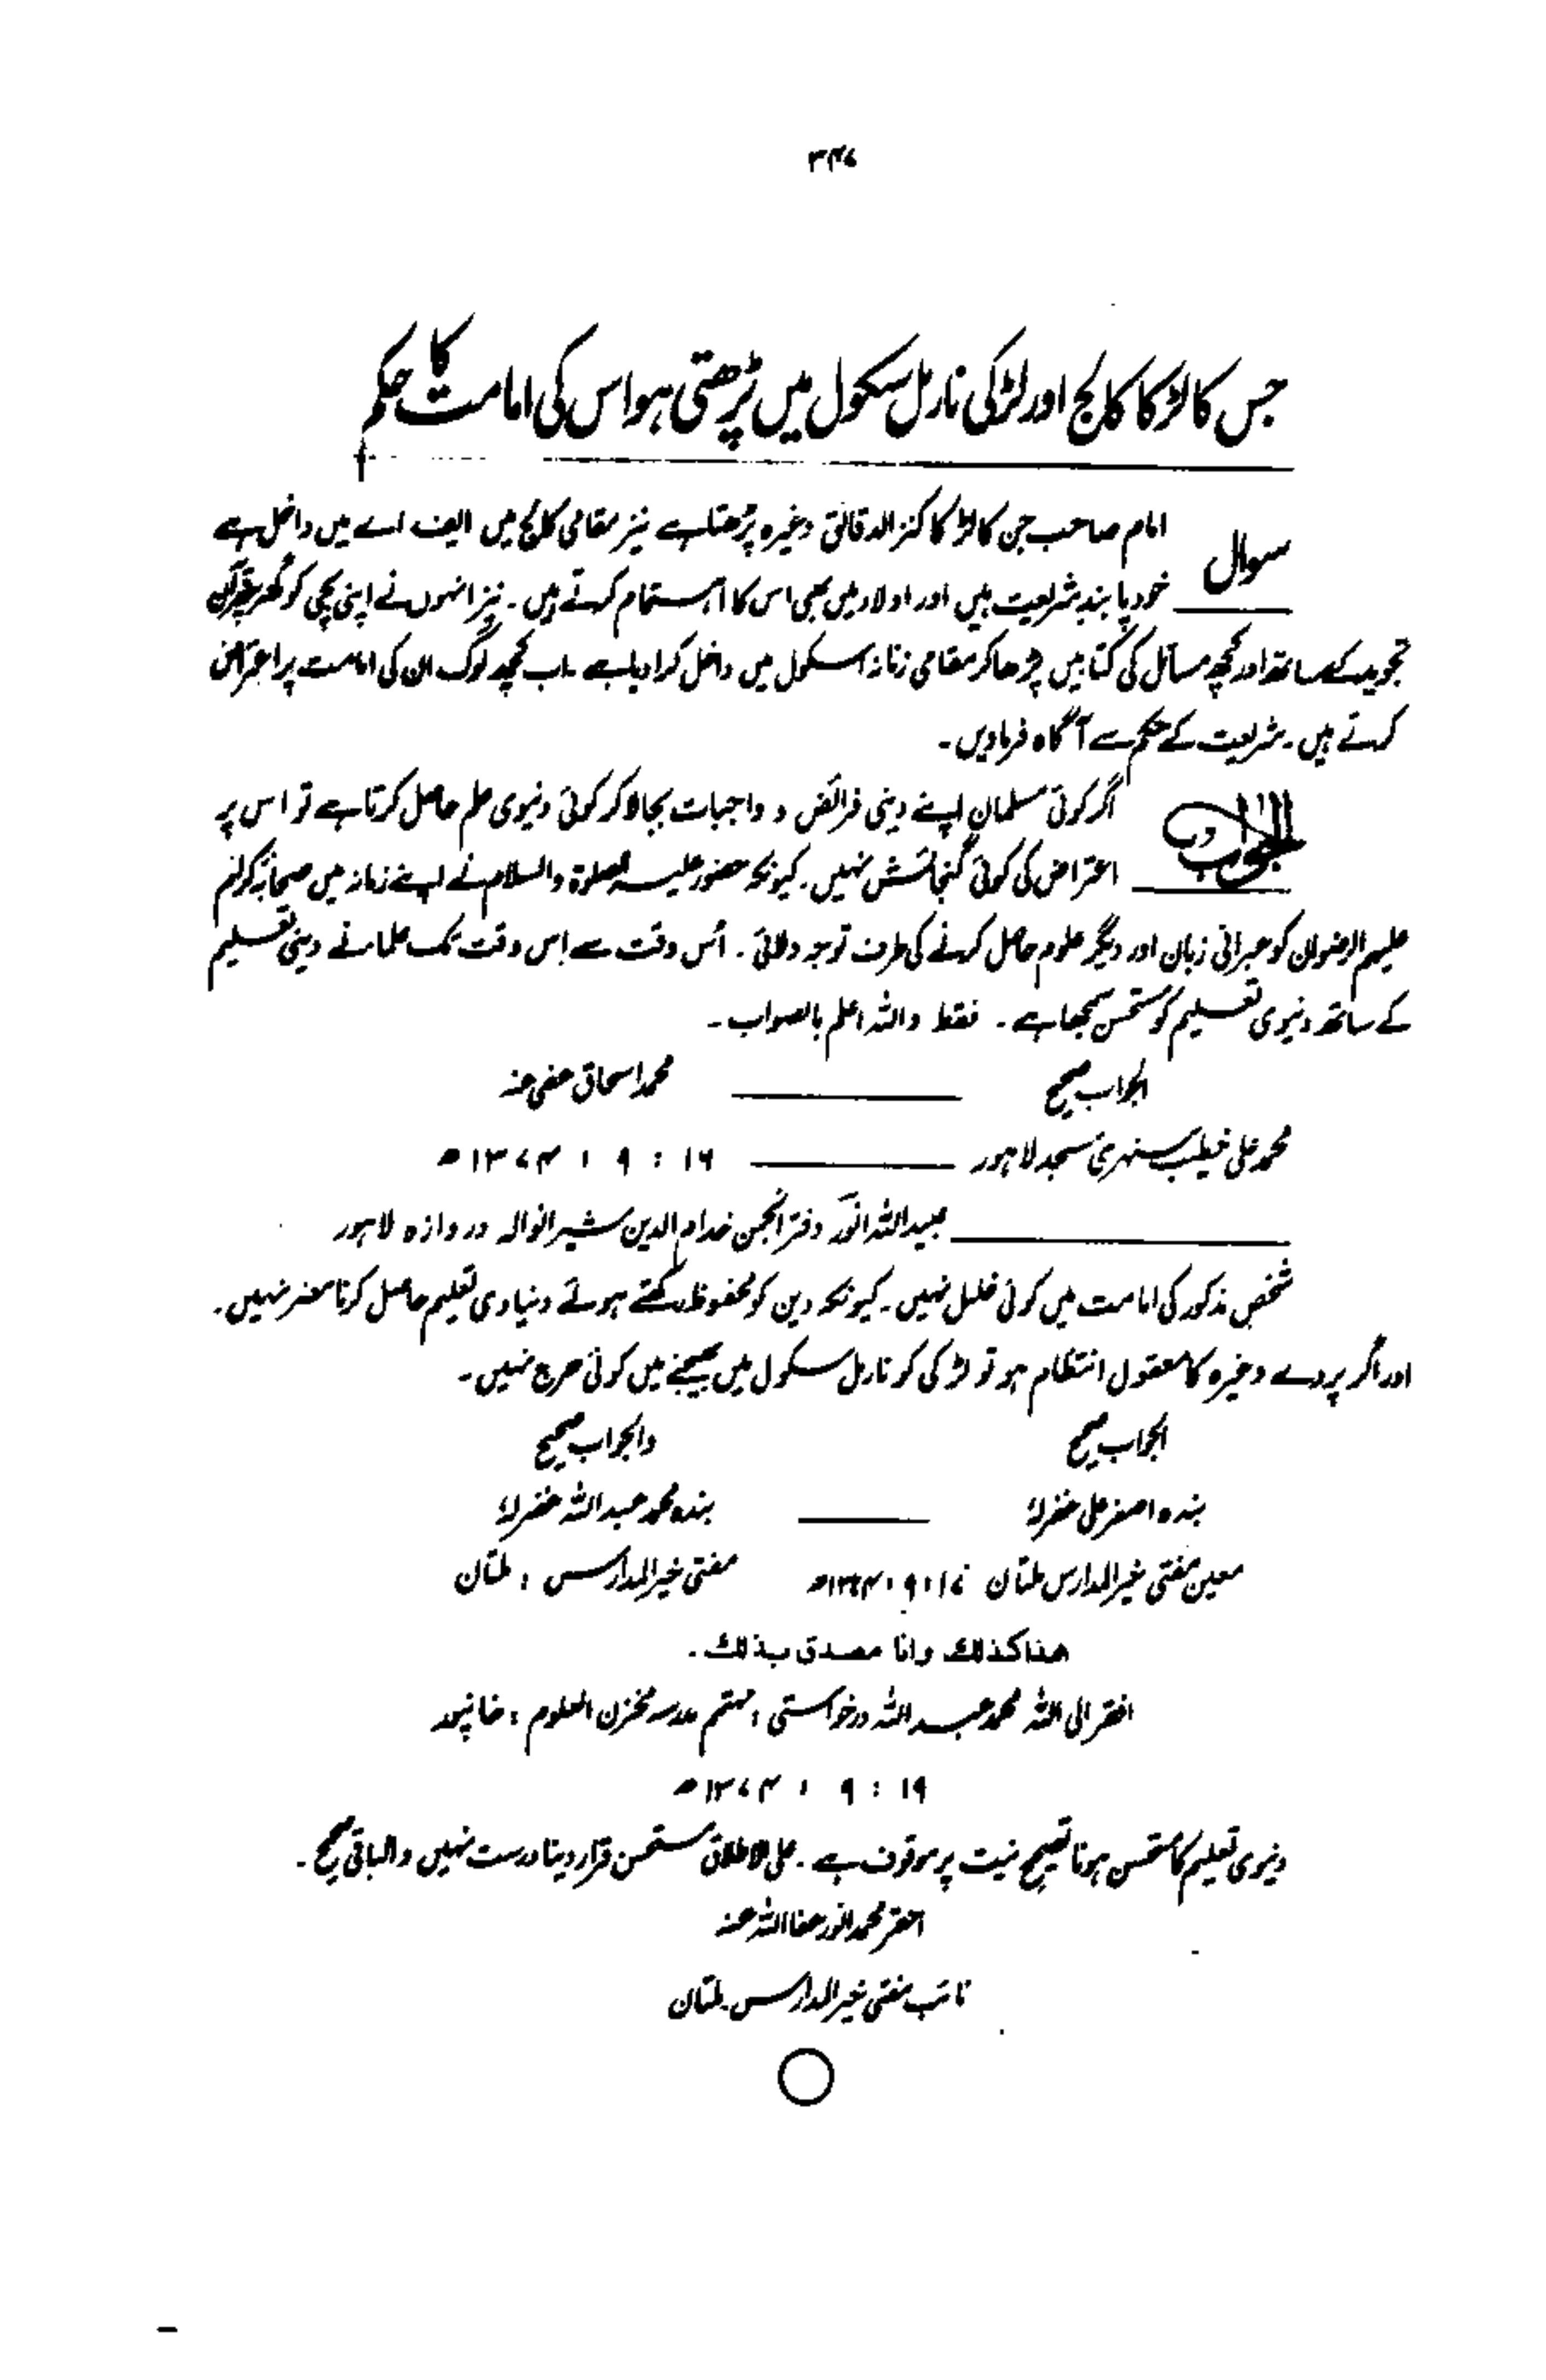 ۳۴۷
جس کا لڑکا کالج اور لڑکی نارمل سکول میں پڑھتی ہو اس کی امامت کا حکم
سوال امام صاحب جن کا لڑکا کنز الدقائق وغیرہ پڑھتا ہے نیز مقامی کالج میں ایف اے میں داخل ہے
خود پابند شریعت ہیں اور اولاد میں بھی اس کا اہتمام کرتے ہیں۔ نیز انہوں نے اپنی بچی کو گھر پر قرآن
تجوید کے ساتھ اور کچھ مسائل کی کتابیں پڑھا کر مقامی زنانہ اسکول میں داخل کرا دیا ہے ۔ اب کچھ لوگ ان کی امامت پر اعتراض
کرتے ہیں ۔ شریعت کے حکم سے آگاہ فرماویں۔
الجواب اگر کوئی مسلمان اپنے دینی فرائض و واجبات بجا لا کر کوئی دنیوی علم حاصل کرتا ہے تو اس پر
اعتراض کی کوئی گنجائش نہیں۔ کیونکہ حضور علیہ الصلوۃ والسلام نے اپنے زمانہ میں صحابہ کرام
علیہم الرضوان کو عبرانی زبان اور دیگر علوم حاصل کرنے کی طرف توجہ دلائی ۔ اُس وقت سے اِس وقت تک علماء نے دینی تعلیم
کے ساتھ دنیوی تعلیم کو مستحسن سمجھا ہے ۔ فقط واللہ اعلم بالصواب ۔
الجواب صحیح محمد اسحاق عفی عنہ
محمد علی خطیب سنہری مسجد لاہور ۱۶ : ۹ : ۱۳۷۴ھ
عبید اللہ انور دفتر انجمن خدام الدین شیرانوالہ دروازہ لاہور
شخص مذکور کی امامت میں کوئی خلل نہیں۔ کیونکہ دین کو محفوظ رکھتے ہوئے دنیاوی تعلیم حاصل کرنا مضر نہیں۔
اور اگر پردے وغیرہ کا معقول انتظام ہو تو لڑکی کو نارمل سکول میں بھیجنے میں کوئی حرج نہیں۔
الجواب صحیح والجواب صحیح
بندہ اصغر علی غفرلہٗ بندہ محمد عبد اللہ غفرلہٗ
معین مفتی خیر المدارس ملتان ۱۷ : ۹ : ۱۳۷۴ھ مفتی خیر المدارس : ملتان
هذا كذلك وانا مصدق بذلك ۔
افقر الی اللہ محمد عبد اللہ درخواستی : مہتمم مدرسہ مخزن العلوم : خانپور
۱۹ : ۹ : ۱۳۷۴ھ
دنیوی تعلیم کا مستحسن ہونا تصحیح نیت پر موقوف ہے ۔ علی الاطلاق مستحسن قرار دینا درست نہیں والباقی صحیح ۔
احقر محمد انور عفا اللہ عنہ
نائب مفتی خیر المدارس ملتان